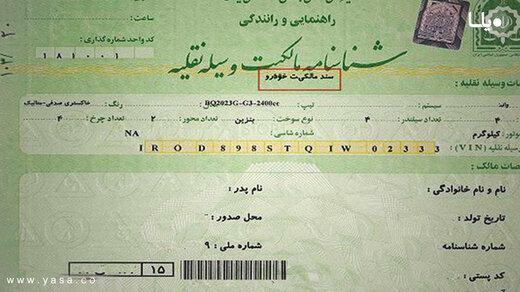 راهنمایی و رانندگی
یلــا
ساعت :
کد واحد شماره گذاری :
۱۸۱۰۰۱
شناسنامه مالکیت وسیله نقلیه
سند مالکیت خودرو
وانت سیستم : تیپ : BQ2023G-G3-2400cc رنگ : خاکستری صدفی-متالیک
۴ تعداد سیلندر : ۴ نوع سوخت : بنزین تعداد محور : ۲ تعداد چرخ : ۴
کیلوگرم شماره شاسی : NA
نقلیه (VIN) : IROD898STQIW02333
نام و نام خانوادگی : نام پدر :
تاریخ تولد : محل صدور : -
شماره شناسنامه شماره ملی : ۹
کد پستی :
۱۵
www.yasa.co